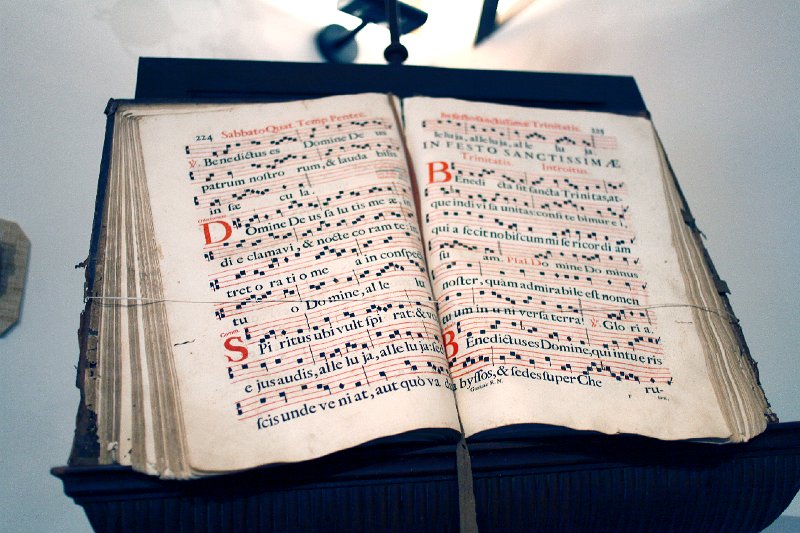 224 Sabbato Quat. Temp. Pentec.
℣. Benedictus es Domine De us
patrum nostro rum, & lauda bilis
in sæ cu la.
DOmine De us sa lu tis me æ, in
di e clamavi, & nocte co ram te: in
tret o ra ti o me a in conspe
tu o Do mi ne, al le lu
SPi ri tus ubi vult spi rat: & v
e jus audis, alle lu ja, alle lu ja: se
scis unde ve ni at, aut quò va
In festo sanctissimæ Trinitatis. 225
le lu ja, alle lu ja, al le lu ja
IN FESTO SANCTISSIMÆ
Trinitatis. Introitus.
BEnedi cta sit sancta Trinitas, at-
que indi vi sa unitas: confi te bimur e i,
qui a fe cit nobiscum mi se ri cor di am
su am. Psal. Do mine Do minus
noster, quàm admirabile est nomen
tu um in u ni versa terra! ℣. Glo ri a.
BEnedictus es Domine, qui intu e ris
abyssos, & sedes super Che ru-
Graduc R. N.